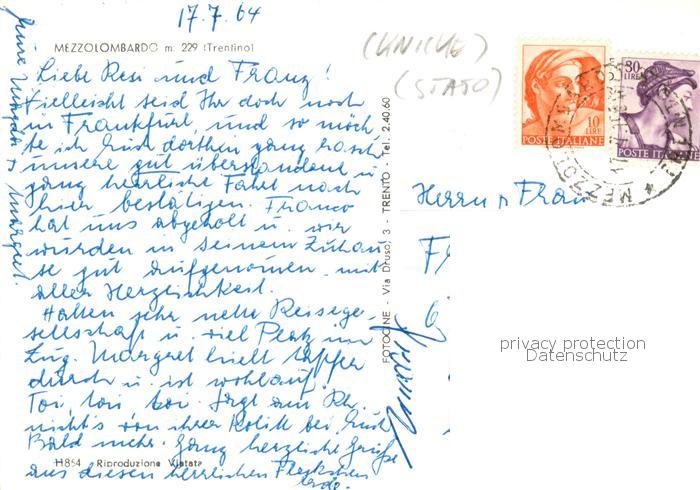 17.7.64
MEZZOLOMBARDO m. 229 (Trentino)
Liebe Resi und Franz!
Vielleicht seid Ihr doch noch
in Frankfurt, und so möch-
te ich Euch dorthin ganz rasch
unsere gut überstandene u.
ganz herrliche Fahrt nach
hier bestätigen. Franco
hat uns abgeholt u. wir
wurden in seinem Zuhau-
se gut aufgenommen, mit
aller Herzlichkeit.
Hatten sehr nette Reisege-
sellschaft u. viel Platz im
Zug. Margret hielt tapfer
durch u. ist wohlauf!
Toi, toi, toi. Sagt am
nichts von ihrer Kolik bei Euch
Bald mehr. Ganz herzliche Grüße
aus diesem herrlichen Fleckchen
Erde.
H854 Riproduzione Vietata
Eure u. Margret
FOTOCINE - Via Druso, 3 - TRENTO - Tel. 2.40.60
(KNICKE)
(STATO)
10
LIRE
POSTE ITALIANE
30
LIRE
POSTE ITALIANE
MEZZO
Herrn u Frau
F
privacy protection
Datenschutz